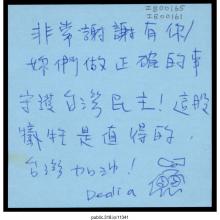 IB00165
IB00161
非常謝謝有你/
妳們做正確的事
守護台灣民主!這股
犧牲是值得的.
台灣加油!
Dedra
public.318.io/11341